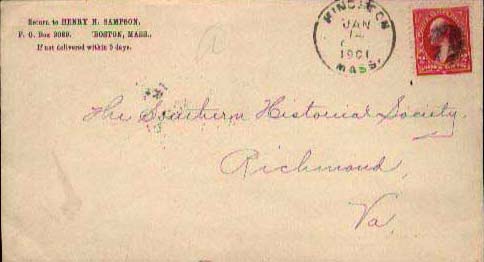 Return to HENRY N. SAMPSON,
P. O. Box 3089. BOSTON, MASS.,
If not delivered within 5 days.
JAN
14
1901
MASS.
The Southern Historical Society,
Richmond,
Va.